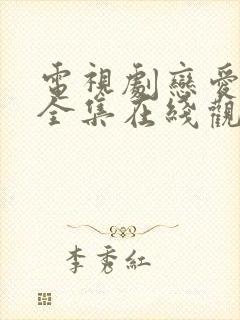 電視劇戀愛
全集在綫觀
李秀紅